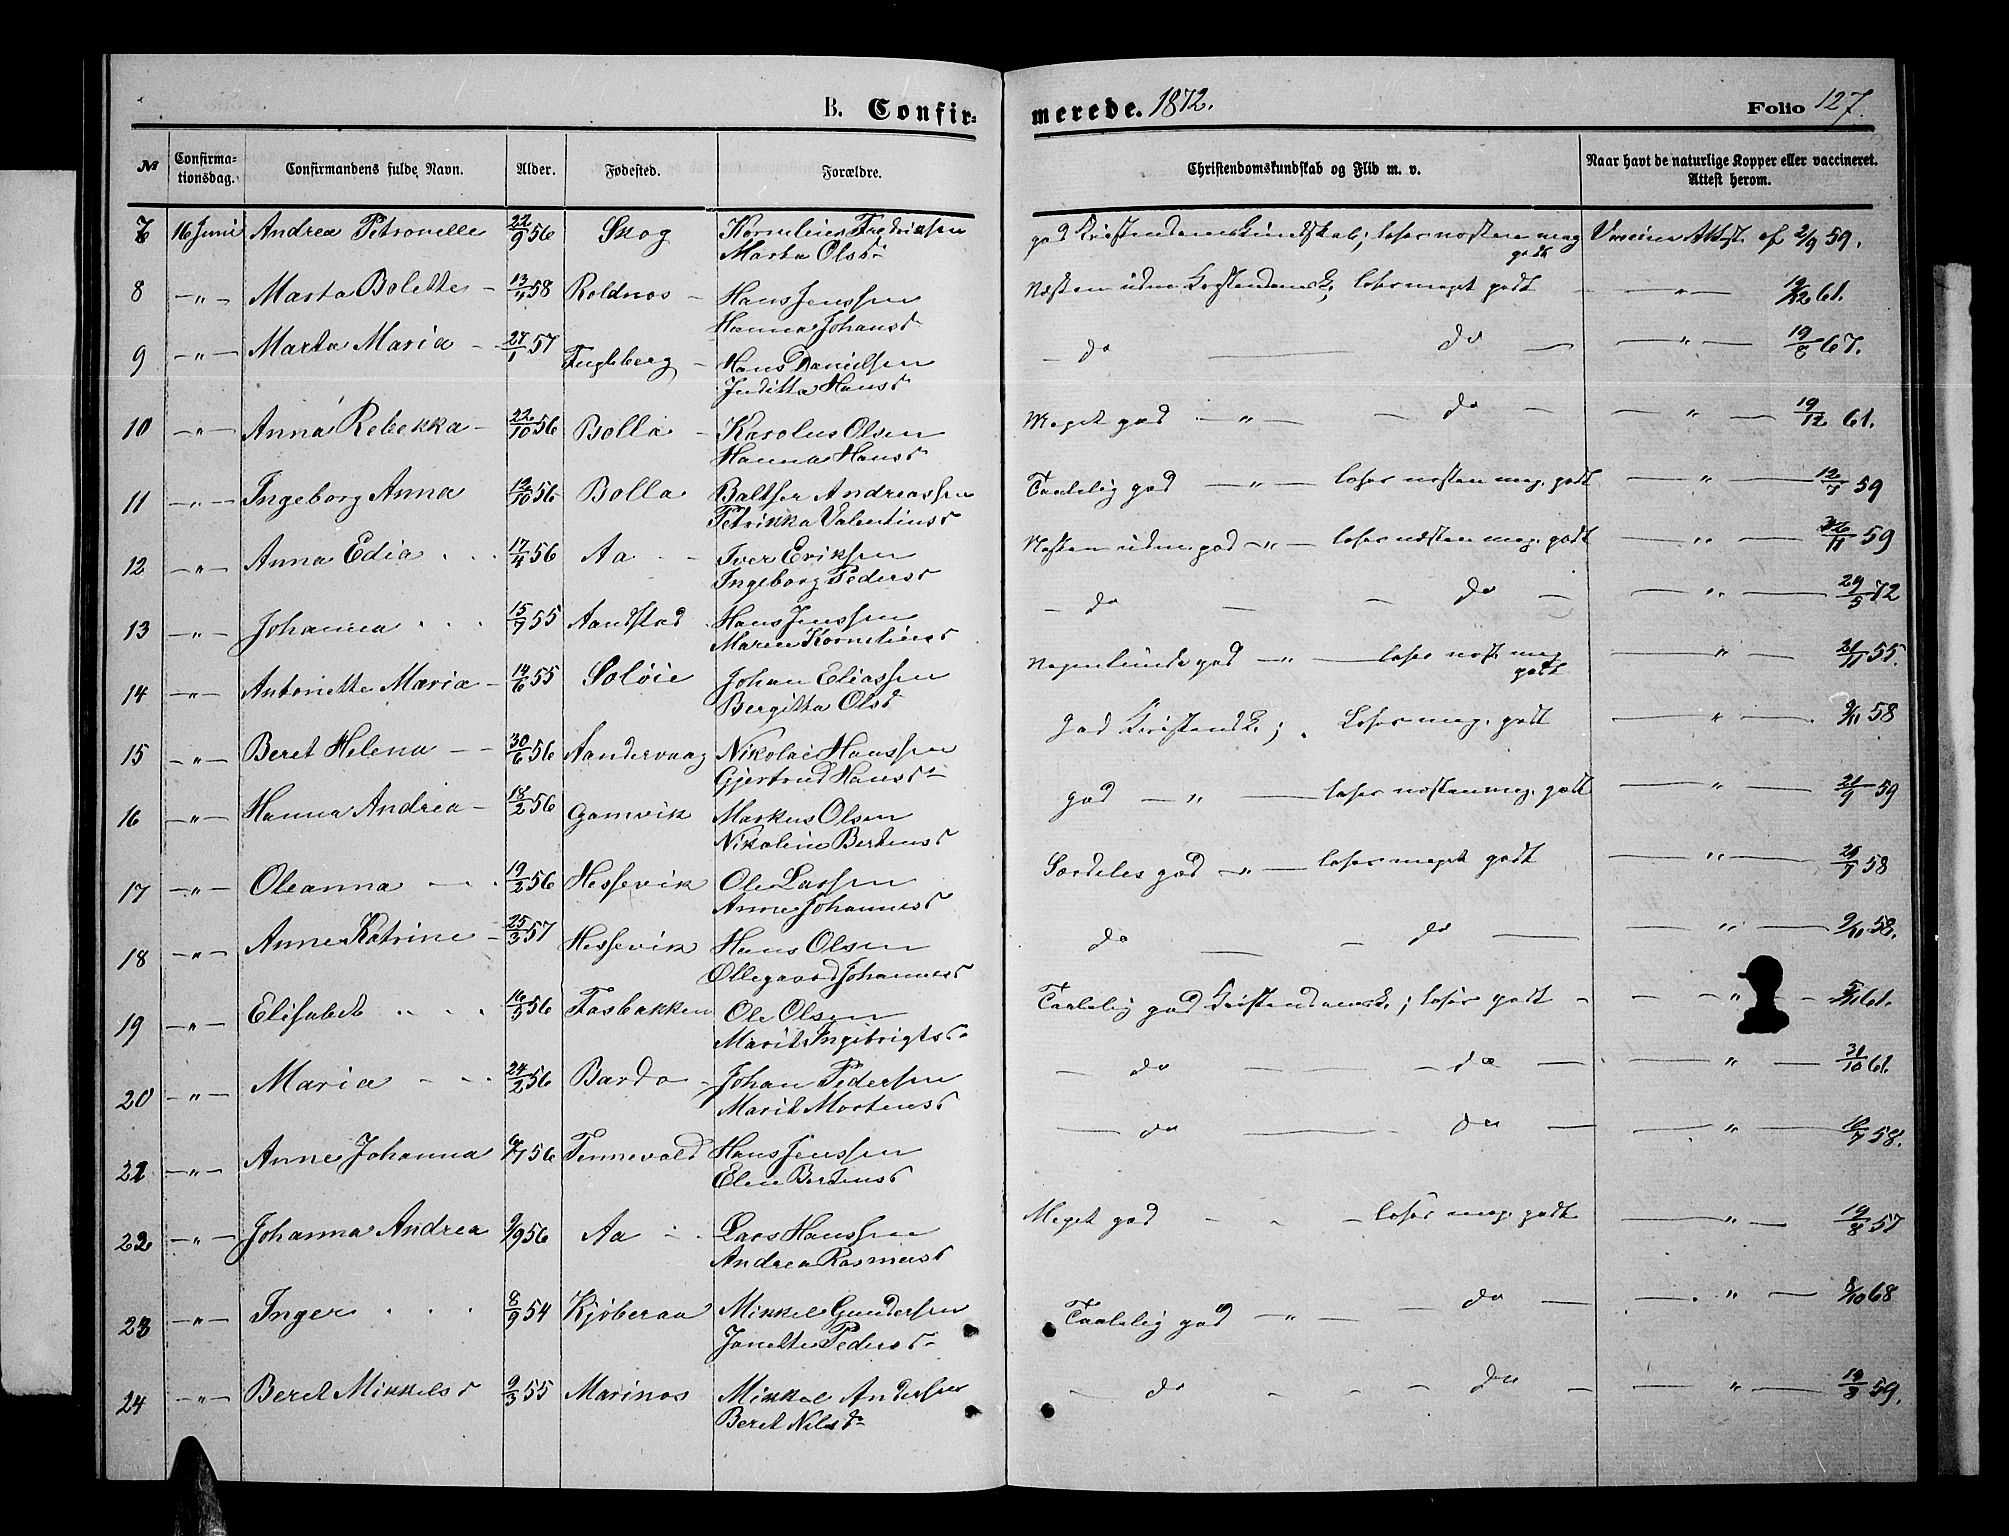 B. Confir=
merede. 1872.
Folio 127.
№ Confirma-tionsdag. Confirmandens fulde Navn. Alder. Fødested. Forældre. Christendomskundskab og Flid m. v. Naar havt de naturlige Kopper eller vaccineret. Attest herom.
7 16 Juni Andrea Petronelle 22/9 56 Skog Kornelius Fredriksen god Kristendomskundskab; læser næsten meg Vaccine Attest af 2/9 59.
Marta Olsd godt
8 —"— Marta Bolette 13/4 58 Roldnæs Hans Jenssen Næsten uden læser meget godt —"— 19/12 61.
Hanna Johansd
9 —"— Marta Maria 27/1 57 Fugleberg Hans Danielsen do do —"— 19/8 67.
Juditta Hansd
10 —"— Anna Rebekka 22/10 56 Bolla Karolus Olsen Meget god —"— do —"— 19/12 61.
Hanna Hansd
11 —"— Ingeborg Anna 12/10 56 Bolla Baltser Andreassen Taalelig god —"— læser næsten meg. godt —"— 12/7 59
Petrikka Valentinsd
12 —"— Anna Edia 17/4 56 Aa Iver Eriksen Næsten uden god —"— læser næsten meg. godt —"— 26/11 59
Ingeborg Pedersd
13 —"— Johanna 15/7 55 Aandstad Hans Jenssen do do —"— 29/5 72
Maren Korneliusd
14 —"— Antonette Maria 14/6 55 Soløie Johan Eliassen Nogenlunde god —"— læser næst meg —"— 21/11 55.
Bergitta Olsd godt
15 —"— Beret Helena 30/6 56 Aandervaag Nikolai Hanssen God Kristendsk; Læser meg. godt —"— 9/11 58
Gjertrud Hansd
16 —"— Hanna Andrea 18/2 56 Gamvik Markus Olsen god —"— læser næsten meg. godt —"— 21/9 59
Nikoline Bertensd
17 —"— Oleanna 19/2 56 Hessevik Ole Larsen Særdeles god —"— læser meget godt —"— 29/7 58
Anne Johannesd
18 —"— Anne Katrine 25/3 57 Hessevik Hans Olsen do do —"— 9/11 58.
Ollegaard Johannesd
19 —"— Elisabet 16/5 56 Fosbakken Ole Olsen Taalelig god Kristendomsk; læser godt —"— 61.
Marit Ingebrigtsd
20 —"— Maria 24/2 56 Bardo Johan Pedersen do do —"— 31/10 61.
Marit Mortensd
21 —"— Anne Johanna 6/7 56 Tennevold Hans Jenssen do do —"— 16/7 58.
Elen Bertensd
22 —"— Johanna Andrea 9/9 56 Aa Lars Hanssen Meget god læser meg. godt —"— 19/8 57
Andrea Rasmusd
23 —"— Inger 8/9 54 Kjøberaa Mikkel Gundersen Taalelig god —"— do —"— 8/10 68
Janette Pedersd
24 —"— Beret Mikkelsd 9/3 55 Marinæs Mikkel Andersen do do —"— 19/3 59.
Beret Nilsd